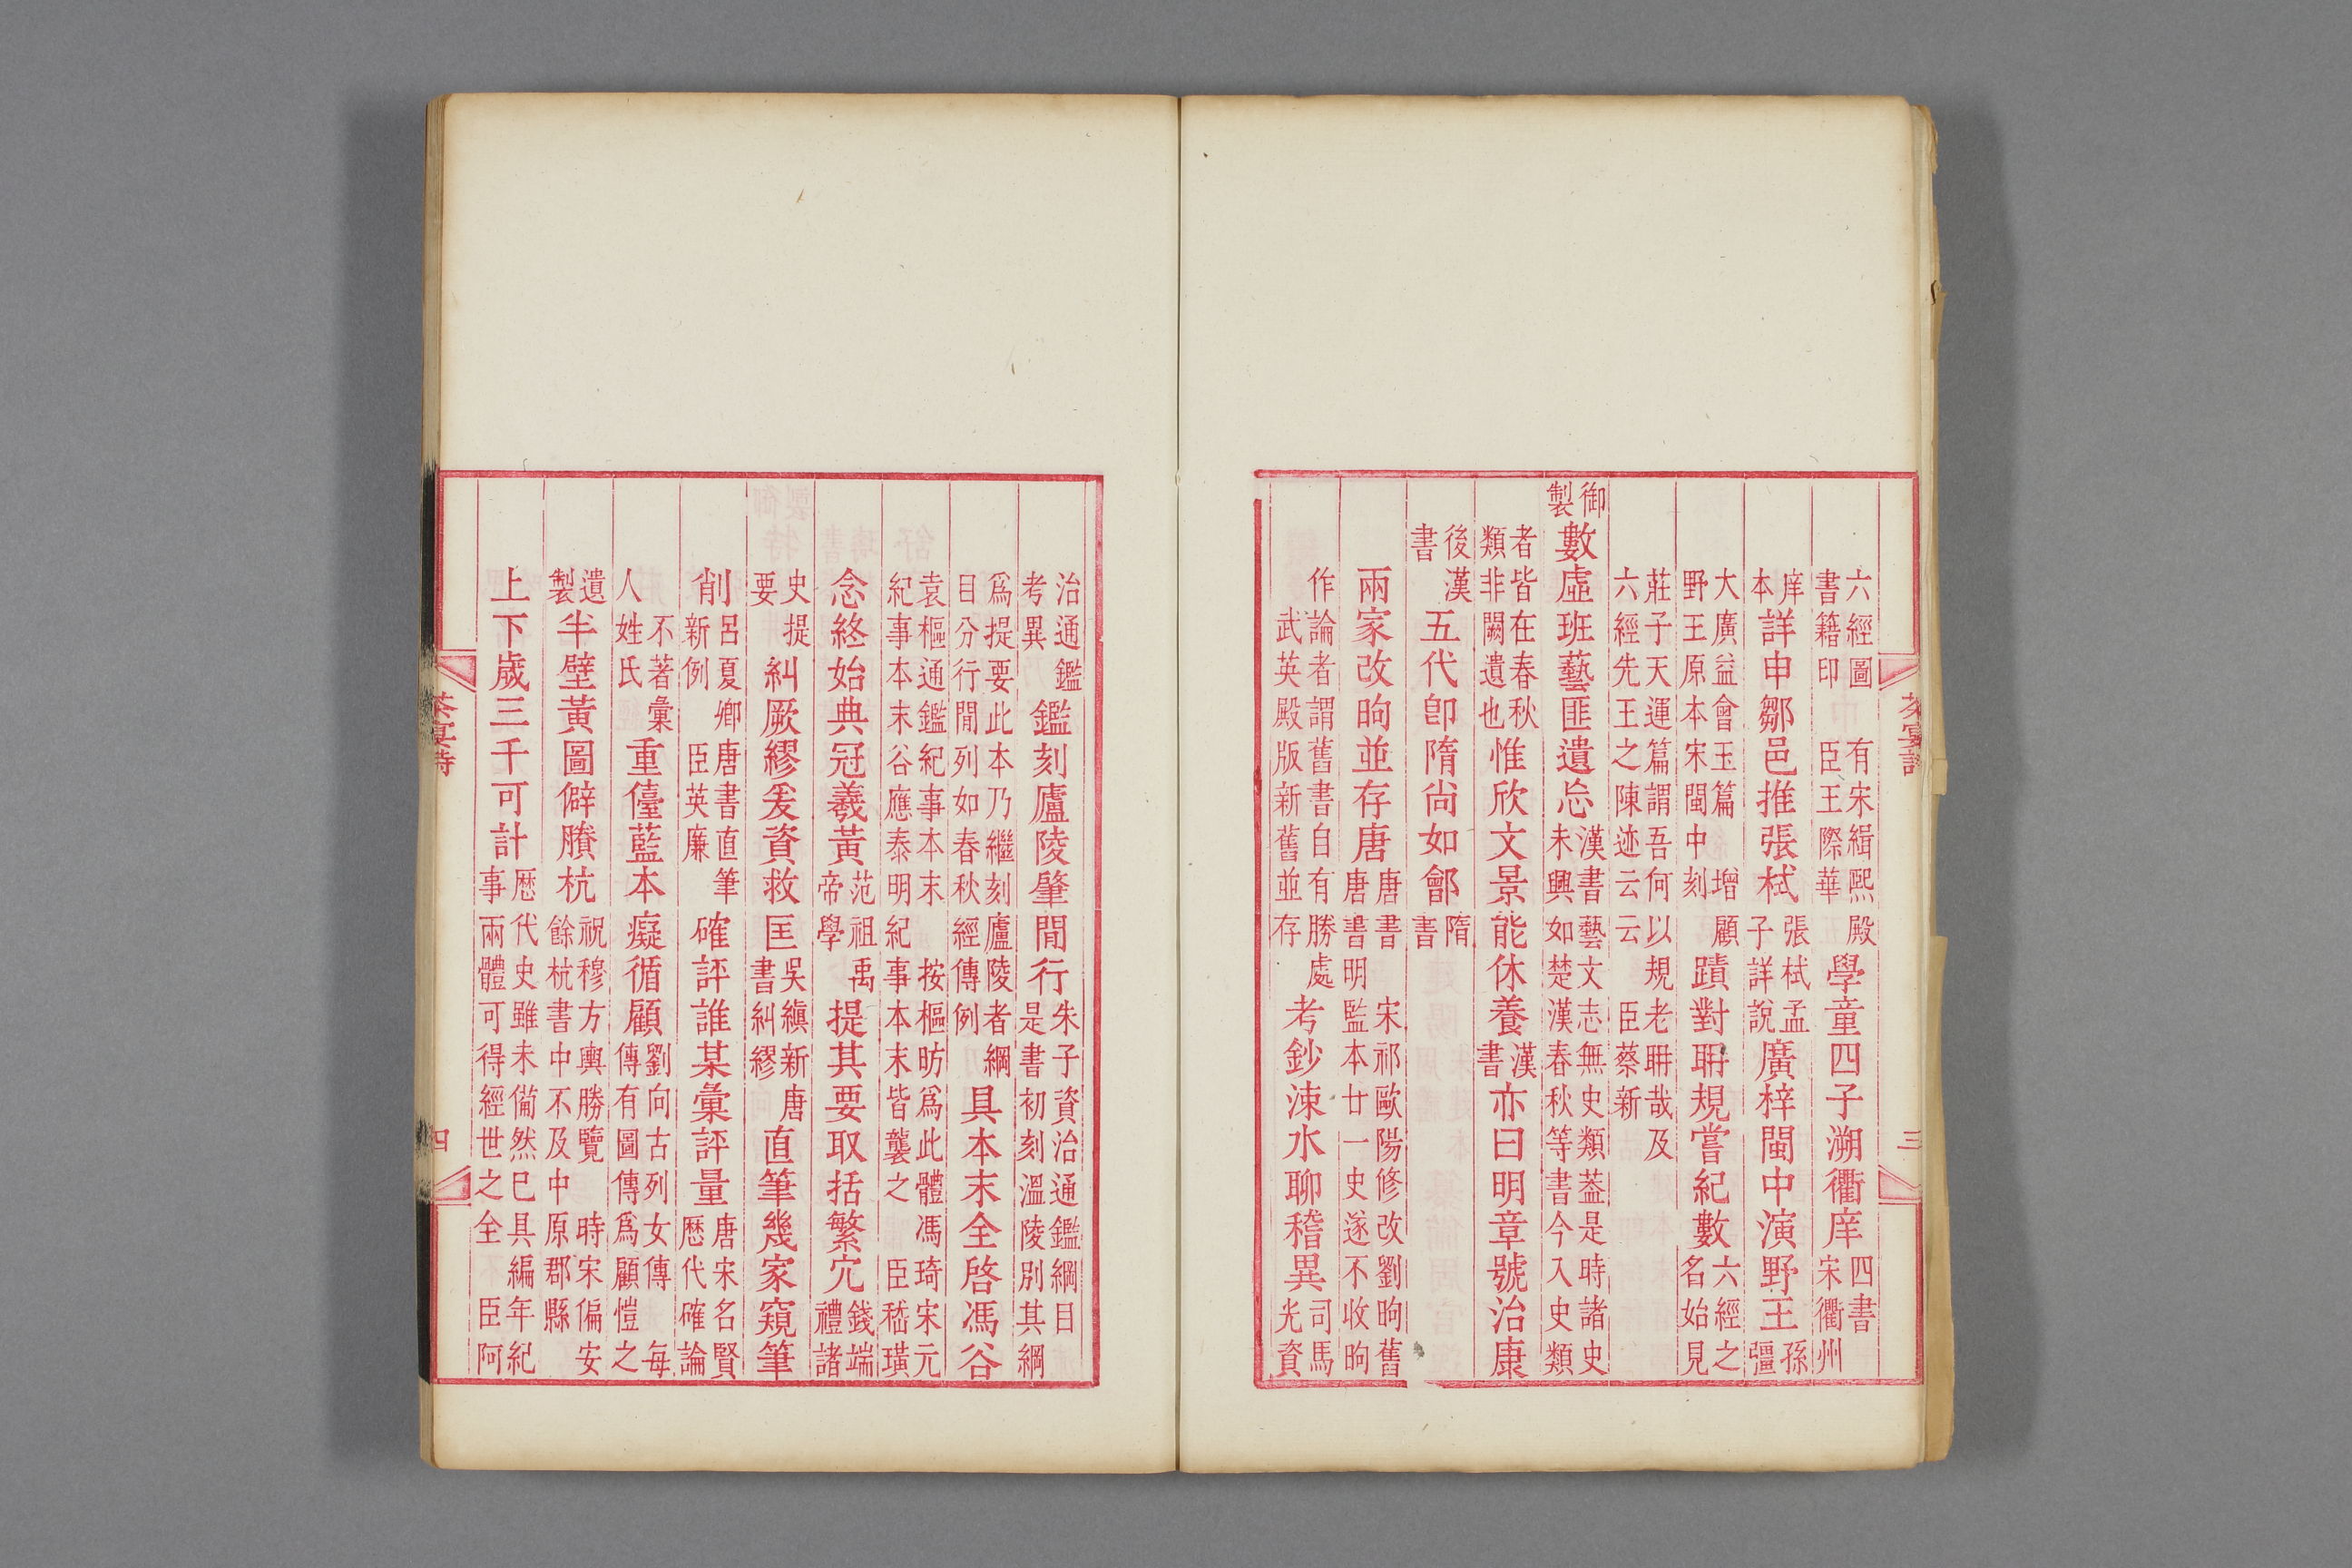 茶宴詩 三
六經圖 有宋緝熙殿
書籍印 臣王際華
學童四子溯衢庠
四書
宋衢州
庠
本
詳申鄒邑推張栻
張栻孟
子詳說
廣梓閩中演野王
孫
彊
大廣益會玉篇 增顧
野王原本宋閩中刻
蹟對聃規嘗紀數
六經之
名始見
莊子天運篇謂吾何以規老聃哉及
六經先王之陳迹云云 臣蔡新
御
製
數虛班藝匪遺忘
漢書藝文志無史類葢是時諸史
未興如楚漢春秋等書今入史類
者皆在春秋
類非闕遺也
惟欣文景能休養
漢
書
亦曰明章號治康
後漢
書
五代卽隋尙如鄶
隋
書
兩家改昫並存唐
唐書 宋祁歐陽修改劉昫舊
唐書明監本廿一史遂不收昫
作論者謂舊書自有勝處
武英殿版新舊並存
考鈔涑水聊稽異
司馬
光資
治通鑑
考異
鑑刻廬陵肇閒行
朱子資治通鑑綱目
是書初刻溫陵別其綱
爲提要此本乃繼刻廬陵者綱
目分行閒列如春秋經傳例
具本末全啓馮谷
袁樞通鑑紀事本末 按樞昉爲此體馮琦宋元
紀事本末谷應泰明紀事本末皆襲之 臣嵇璜
念終始典冠羲黃
范祖禹
帝學
提其要取括繁宂
錢端
禮諸
史提
要
糾厥繆爰資救匡
吳縝新唐
書糾繆
直筆幾家窺筆
削
呂夏卿唐書直筆
新例 臣英廉
確評誰某彙評量
唐宋名賢
歷代確論
不著彙
人姓氏
重儓藍本癡循顧
劉向古列女傳 每
傳有圖傳爲顧愷之
遺
製
半壁黃圖僻賸杭
祝穆方輿勝覽 時宋偏安
餘杭書中不及中原郡縣
上下歲三千可計
歷代史雖未備然已具編年紀
事兩體可得經世之全 臣阿
茶宴詩 四